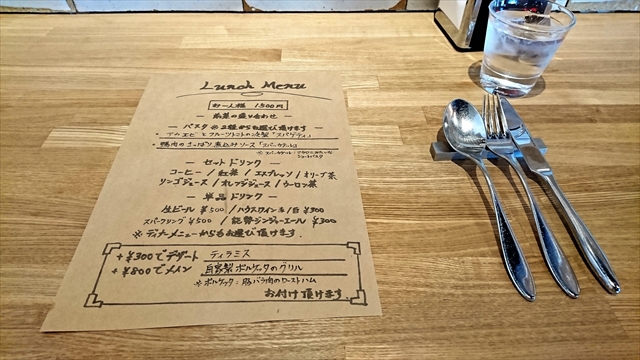 Lunch Menu
お一人様 1500円
前菜の盛り合わせ
— パスタ ※2種からお選び頂けます —
・アカエビとフルーツトマトの冷製『スパゲティ』
・鴨肉のさっぱり煮込みソース『スパッカテッレ』
— セットドリンク —
コーヒー / 紅茶 / エスプレッソ / オリーブ茶
リンゴジュース / オレンジジュース / ウーロン茶
— 単品ドリンク —
生ビール ¥500 / ハウスワイン 赤/白 ¥300
スパークリング ¥500 / 辛口ジンジャーエール ¥300
※ディナーメニューからもお選び頂けます。
+¥300でデザート ティラミス
+¥800でメイン 自家製ポルケッタのグリル
※ポルケッタ:豚バラ肉のローストハム
お付け頂けます。